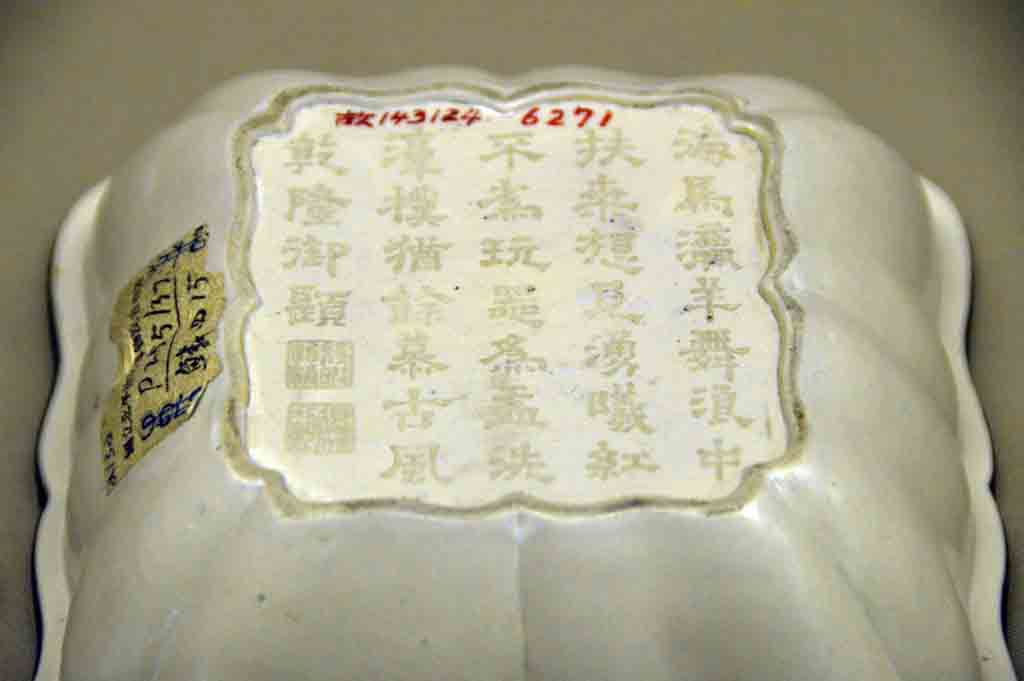 故143124 6271
海馬瀛羊舞浪中
扶桒想見湧曦紅
不為玩器為盥洗
渾樸猶餘慕古風
乾隆御題